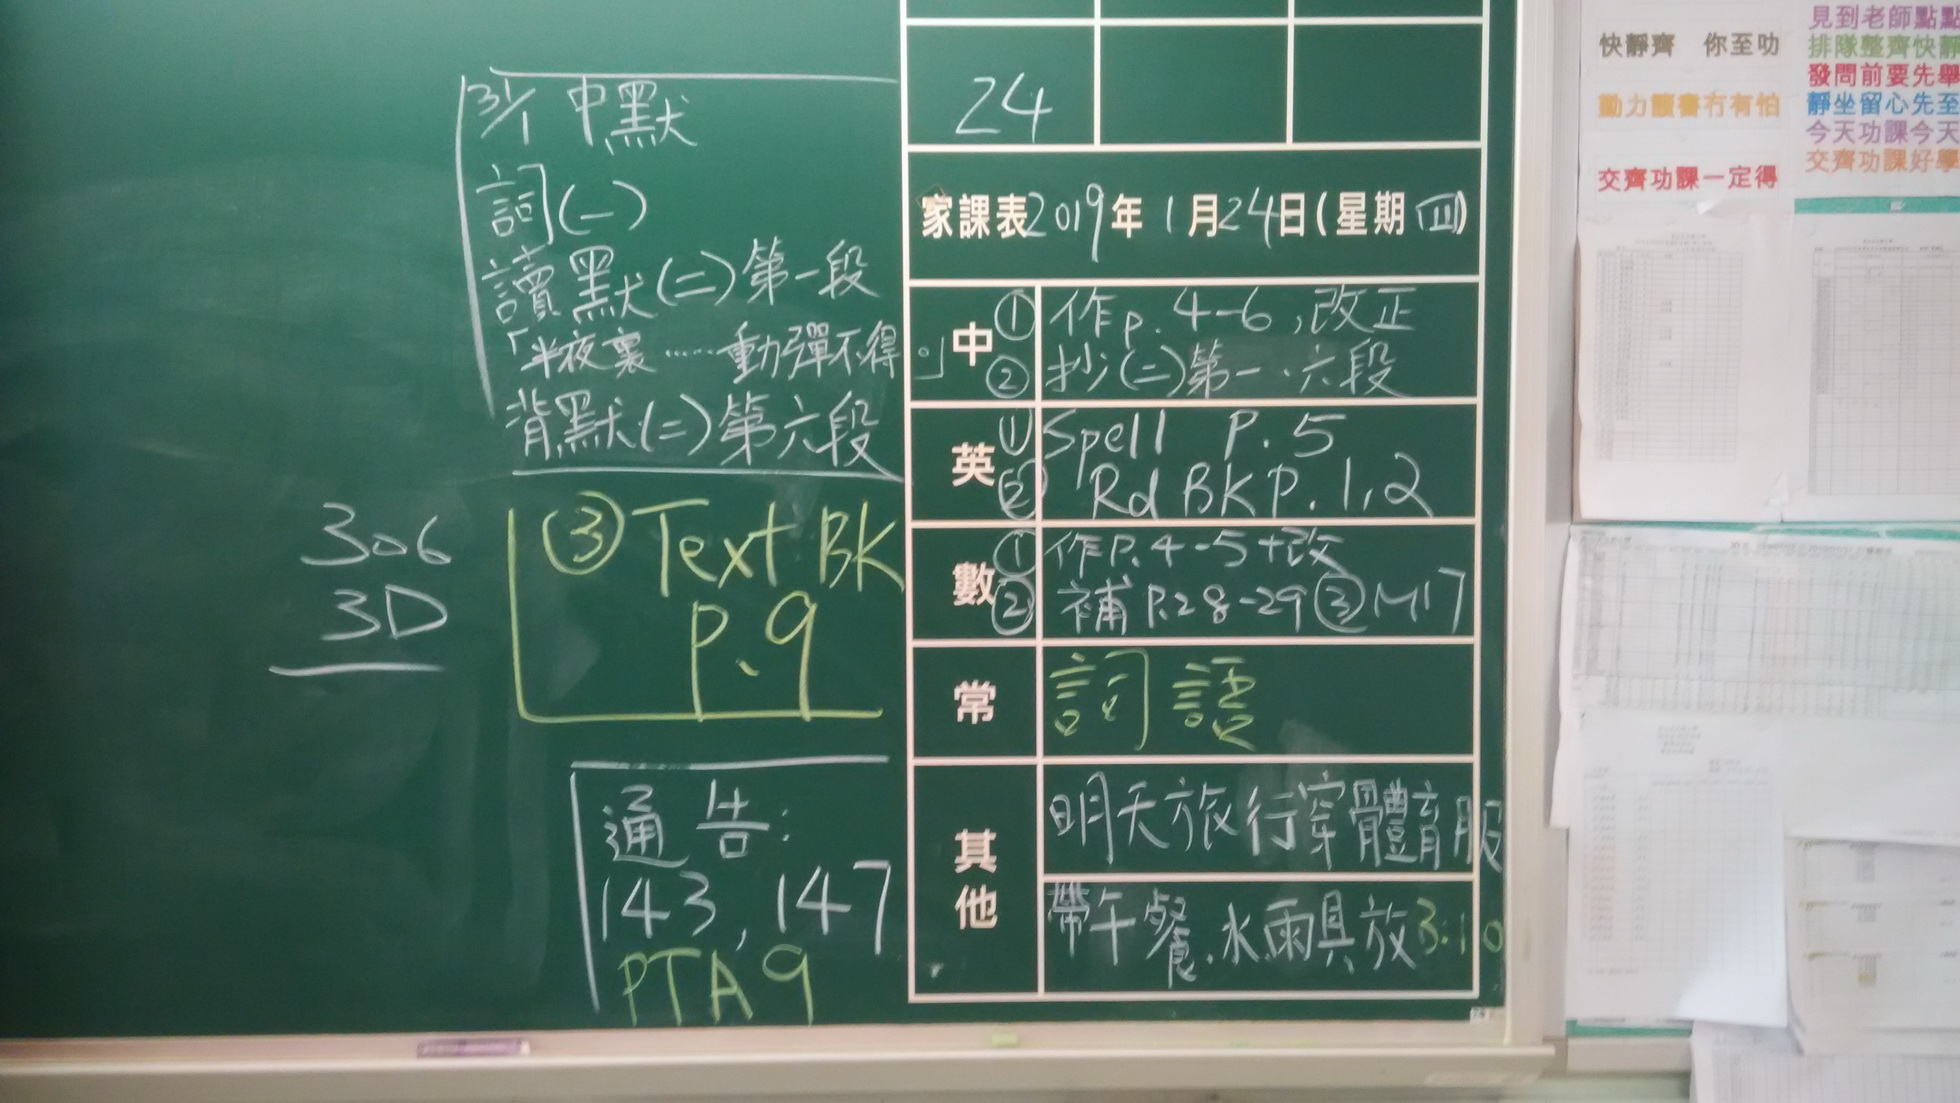 31/1 中默
詞(一)
讀默(二)第一段
「半夜裏……動彈不得。」
背默(二)第六段
306
3D
③ Text BK
P.9
通告:
143, 147
PTA 9
24
家課表2019年1月24日(星期四)
中
① 作p.4-6,改正
② 抄(二)第一、六段
英
① Spell P.5
② Rd BK P.1,2
數
① 作P.4-5+改
② 補P.28-29 ③ M17
常
詞語
其他
明天旅行穿體育服
帶午餐.水.雨具放3:10
快靜齊 你至叻
勤力讀書冇有怕
交齊功課一定得
見到老師點
排隊整齊快靜
發問前要先舉
靜坐留心先至
今天功課今天
交齊功課好學